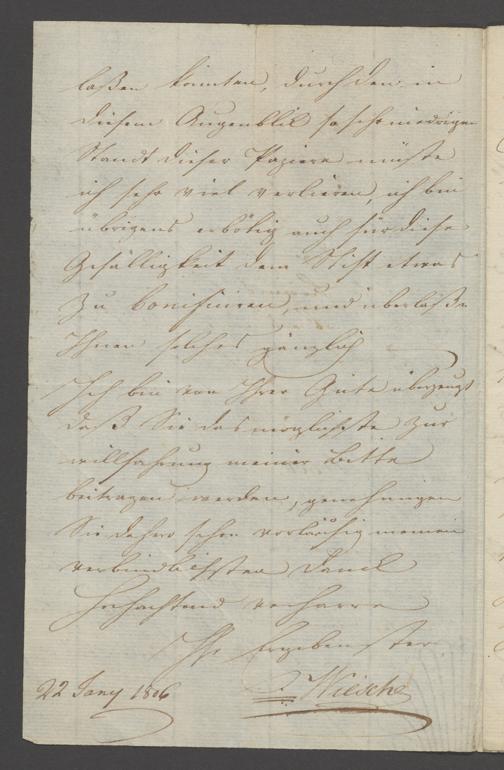 laßen konnten, durch den in
diesem Augenblik so sehr niedrigen
Standt dieser Papiere müßte
ich sehr viel verlieren, ich bin
übrigens erbötig auch für diese
Gefälligkeit dem Stift etwas
zu bonificiren, und überlaße
Ihnen solches gänzlich
Ich bin von Ihrer Güte überzeugt
daß Sie das möglichste zur
willfahrung meiner Bitte
beitragen werden, genehmigen
Sie daher schon vorläufig meinen
verbindlichsten Danck
Hochachtend verharre
Ihr Ergebenster
22 Jany 1806
Wiesche